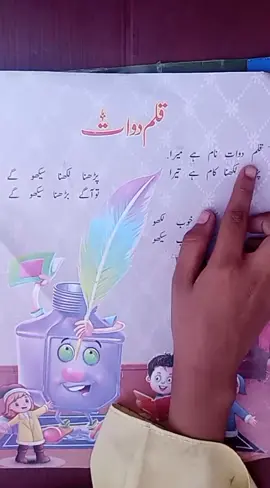 قلم دوات
قلم دوات نام ہے میرا.
لکھنا کام ہے تیرا
پڑھنا لکھنا سیکھو گے
تو آگے بڑھنا سیکھو گے
خوب لکھو
سیکھو